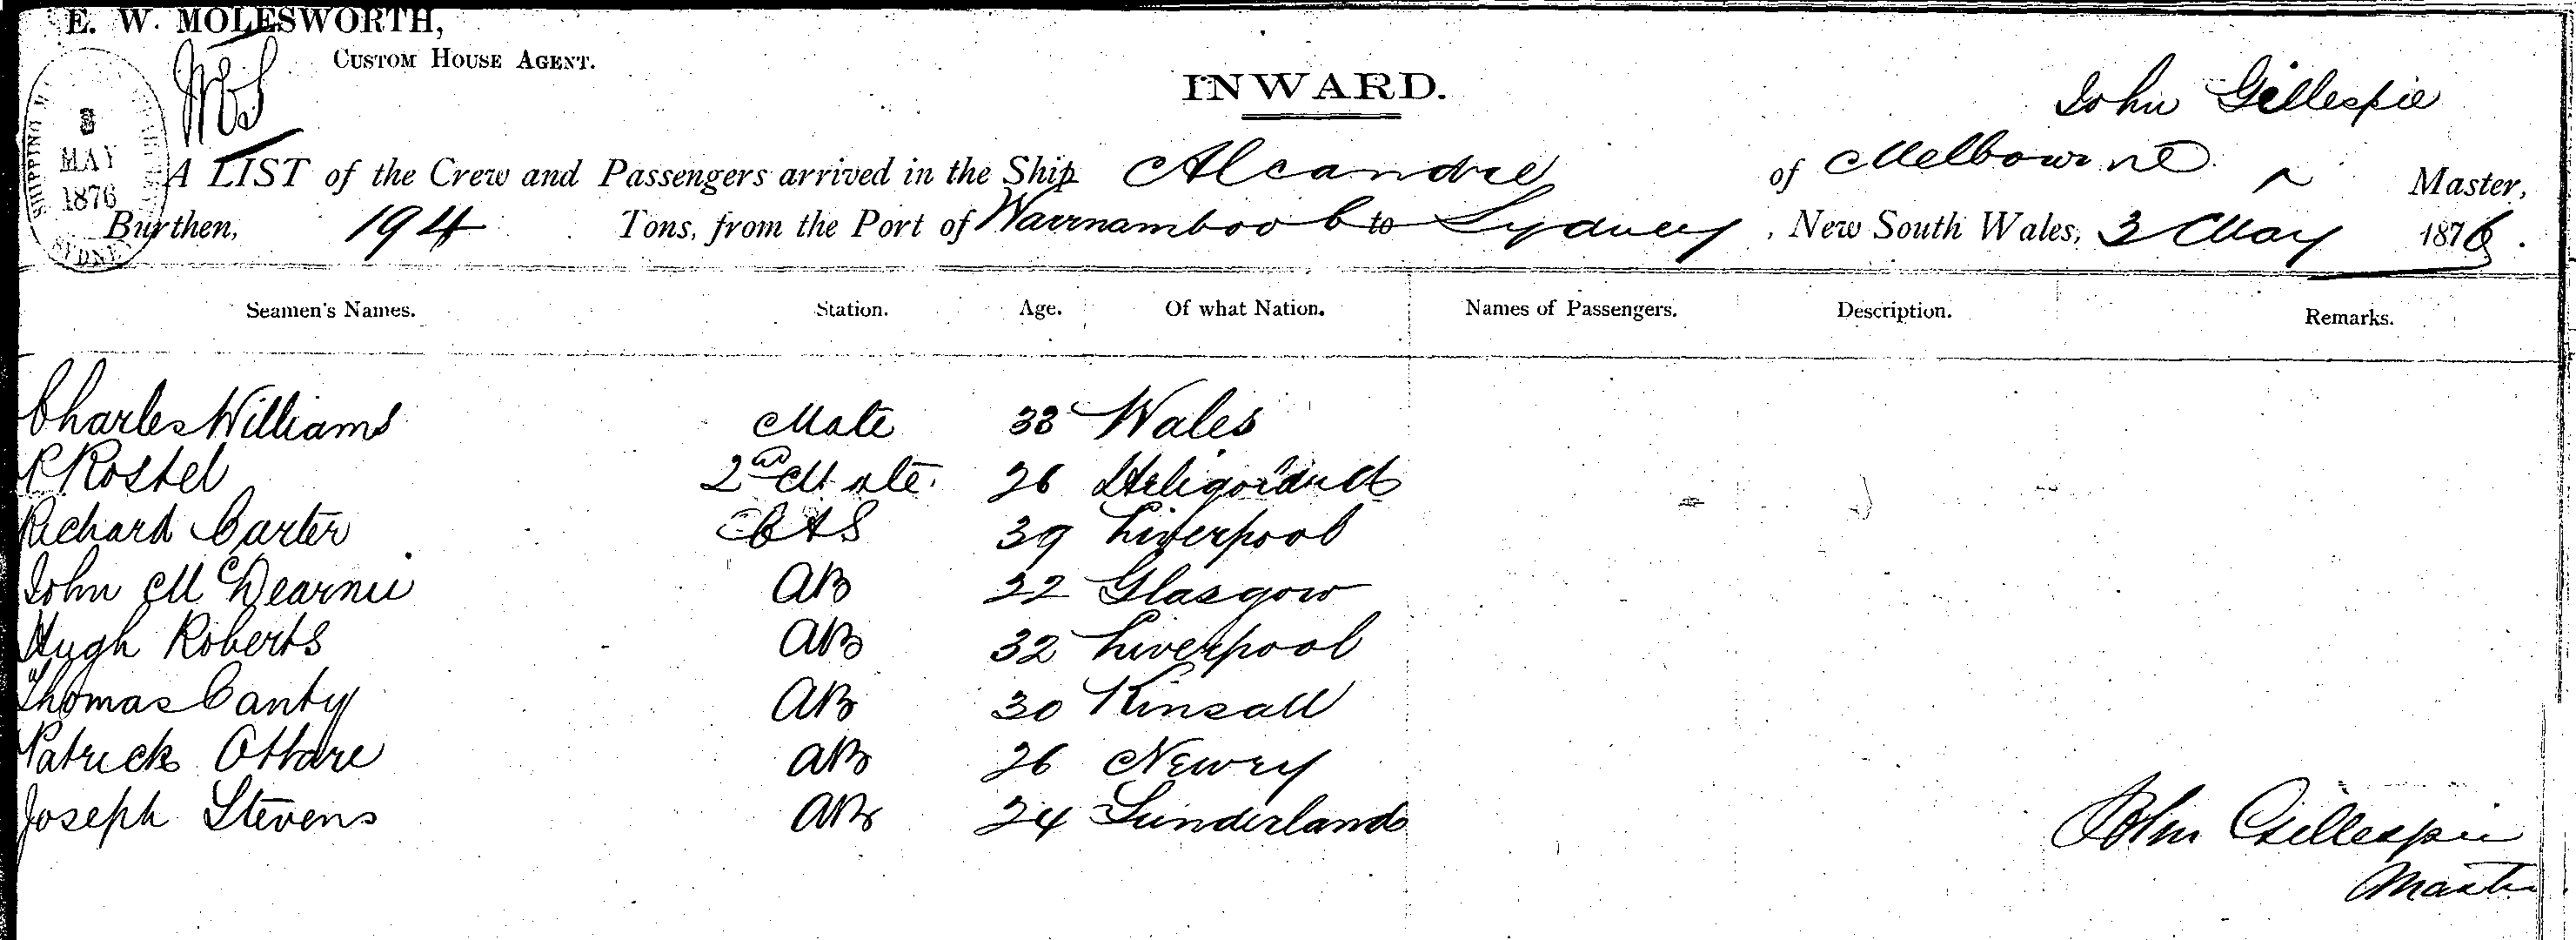 E. W. MOLESWORTH,
CUSTOM HOUSE AGENT.
INWARD.
John Gillespie
SHIPPING
3
MAY
1876
SYDNEY
A LIST of the Crew and Passengers arrived in the Ship Alcandre of Melbourne Master,
Burthen, 194 Tons, from the Port of Warrnambool to Sydney, New South Wales, 3 May 1876.
Seamen's Names. Station. Age. Of what Nation. Names of Passengers. Description. Remarks.
Charles Williams Mate 38 Wales
R Rostel 2nd Mate 26
Richard Carter 39 Liverpool
John AB 22 Glasgow
Hugh Roberts AB 32 Liverpool
Thomas Canty AB 30 Kinsall
Patrick OHare AB 26 Newry
Joseph Stevens AB 24 Sunderland
John Gillespie
Master